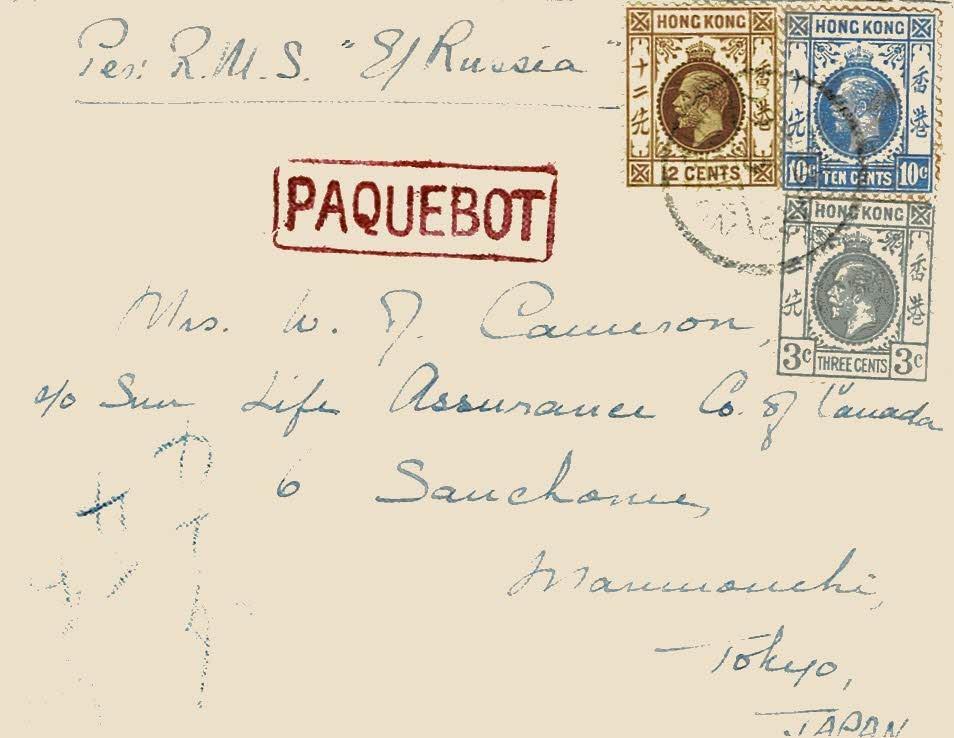 Per: R.M.S. "E/Russia"
HONG KONG
十二先
香港
12 CENTS
HONG KONG
十先
香港
10c TEN CENTS 10c
HONG KONG
先
香港
3c THREE CENTS 3c
PAQUEBOT
Mrs. W. J. Cameron,
c/o Sun Life Assurance Co. of Canada
6 Sanchome,
Marunouchi,
Tokyo,
JAPAN